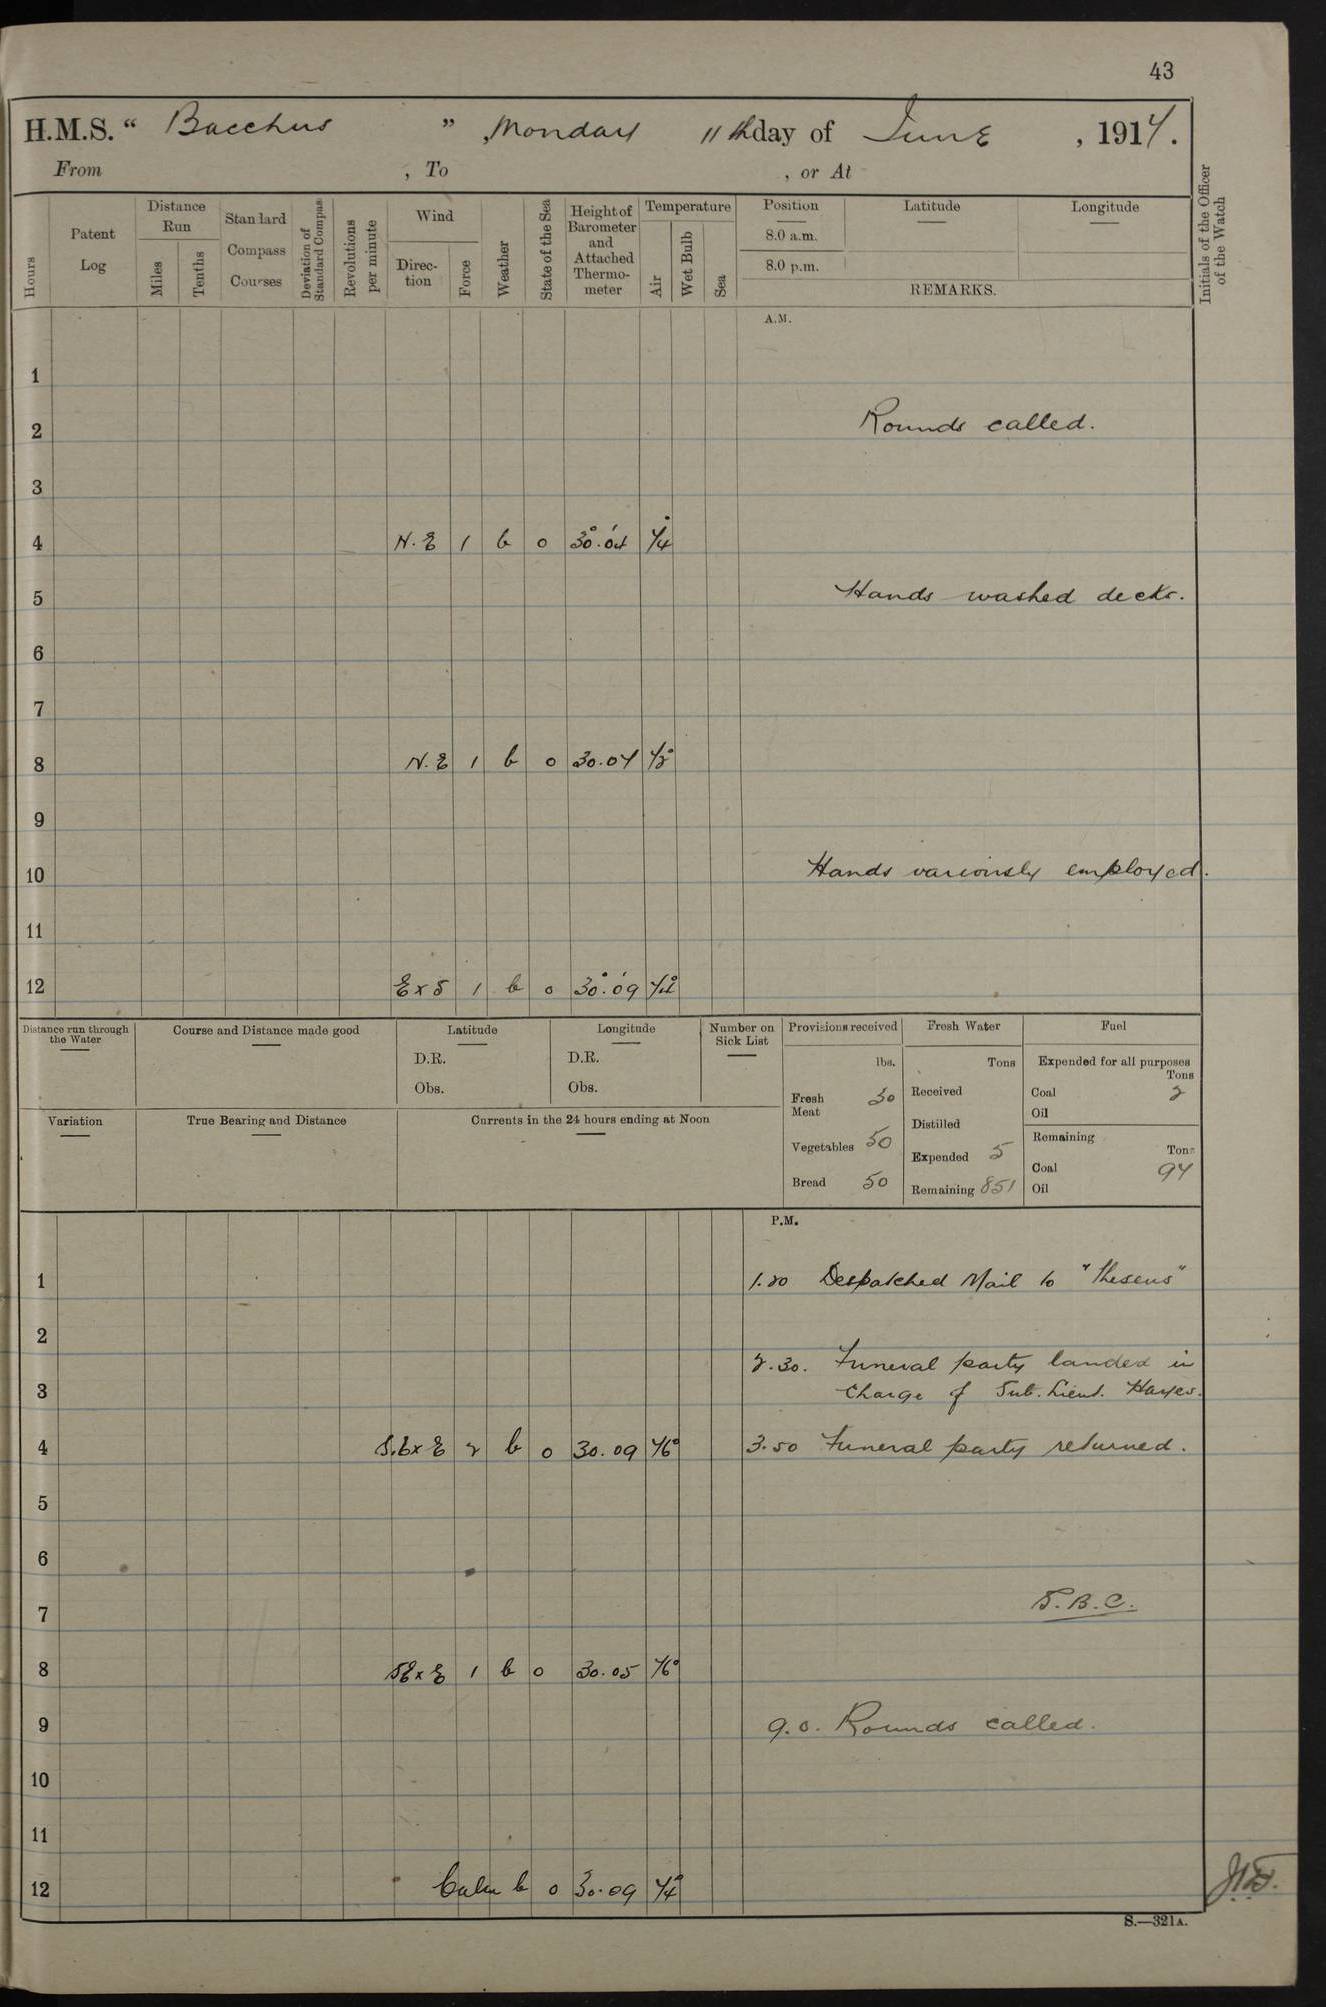 43
H.M.S. “ Bacchus ” , Monday 11th day of June , 1917.
From , To , or At
Hours
Patent Log
Distance Run
Miles
Tenths
Standard Compass Courses
Deviation of Standard Compass
Revolutions per minute
Wind
Direction
Force
Weather
State of the Sea
Height of Barometer and Attached Thermometer
Temperature
Air
Wet Bulb
Sea
Position
8.0 a.m.
8.0 p.m.
Latitude
Longitude
REMARKS.
Initials of the Officer of the Watch
A.M.
1
2 Rounds called.
3
4 N.E 1 b 0 30.04 74
5 Hands washed decks.
6
7
8 N.E 1 b 0 30.07 72°
9
10 Hands variously employed.
11
12 E x S 1 b 0 30.09 74°
Distance run through the Water
Course and Distance made good
Latitude
D.R.
Obs.
Longitude
D.R.
Obs.
Number on Sick List
Variation
True Bearing and Distance
Currents in the 24 hours ending at Noon
Provisions received
lbs.
Fresh Meat 30
Vegetables 50
Bread 50
Fresh Water
Tons
Received
Distilled
Expended 5
Remaining 851
Fuel
Expended for all purposes
Tons
Coal 2
Oil
Remaining
Tons
Coal 97
Oil
P.M.
1 1.20 Despatched Mail to "Theseus"
2
2.30. Funeral party landed in
3 charge of Sub. Lieut. Hayes.
4 S.E x E 2 b 0 30.09 76° 3.50 Funeral party returned.
5
6
7 S.B.C.
8 SE x E 1 b 0 30.05 76°
9 9.0. Rounds called.
10
11
12 Calm b 0 30.09 74°
S.—321A.